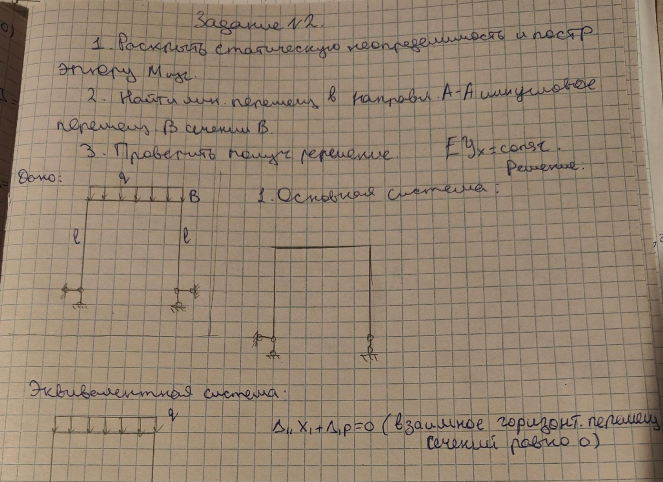 Задание №2.
1. Раскрыть статическую неопределимость и постр
эпюру Mизг.
2. Найти лин. перемещ в направл A-A или угловое
перемещ В сечении В.
3. Проверить получ решение. EJx=const.
Решение.
Дано:
q
B
1. Основная система:
l
l
Эквивалентная система:
q
Δ11 X1+Δ1P=0 (взаимное горизонт. перемещ
сечений равно 0)